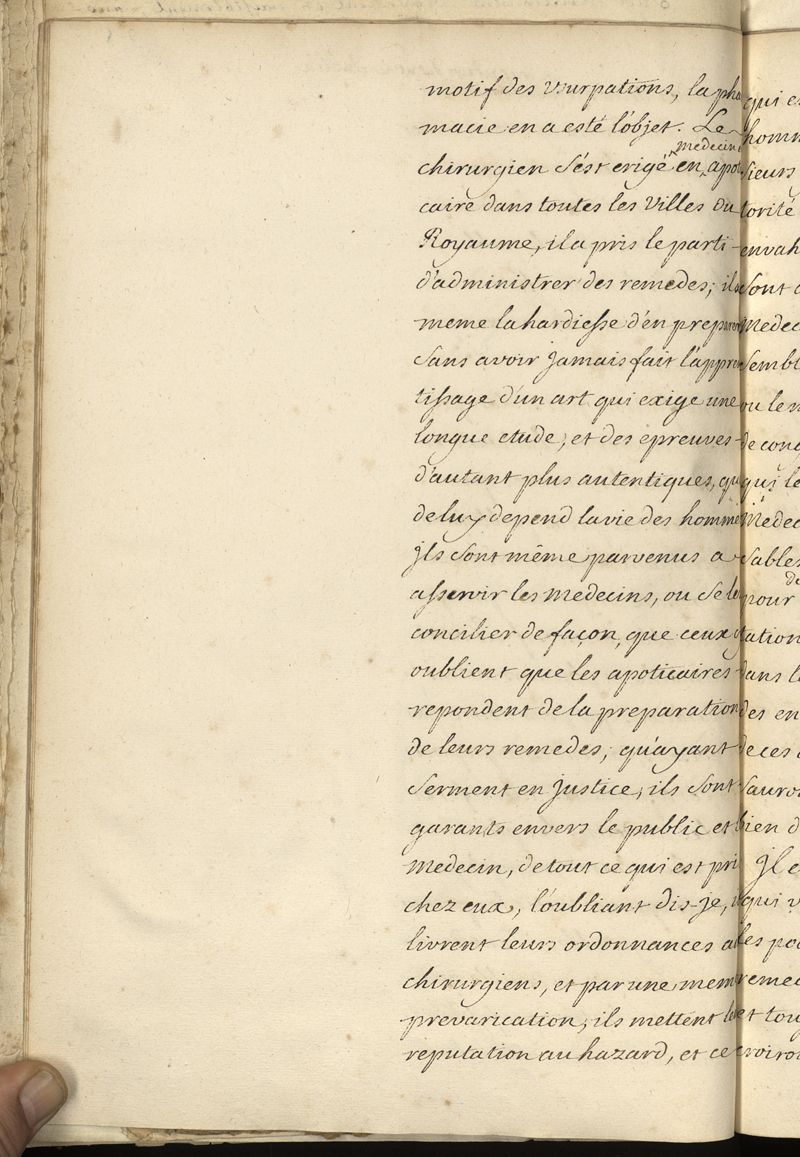 motif des usurpations, la pha
macie en a esté l'objet. Le
medecin
chirurgien s'ést erigé en apot
caire dans toutes les Villes du
Royaume, il a pris le parti
d'administrer des remedes; il
meme la hardiesse d'en preparer
sans avoir jamais fait l'appren
tissage d'un art qui exige une
longue etude, et des epreuves
d'autant plus autentiques, qu
de luy depend la vie des homme
jls sont même parvenus a
asservir les medecins, ou se le
concilier de façon, que ceux cy
oublient que les apoticaires
repondent de la preparation
de leurs remedes; qu'ayant
serment en justice, ils sont
garants envers le public et
medecin, de tout ce qui est pri
chez eux, l'oubliant dis-je, i
livrent leurs ordonnances a
chirurgiens, et par une mem
prevarication, ils mettent le
reputation au hazard, et ce
qui es
homm
sieurs
torité
envah
sont
Medec
sembl
ou le
de cong
qui le
Médec
sables
de
pour
tation
dans l
des en
de ces
sauro
bien d
jl e
qui v
les po
remed
et tou
croiro